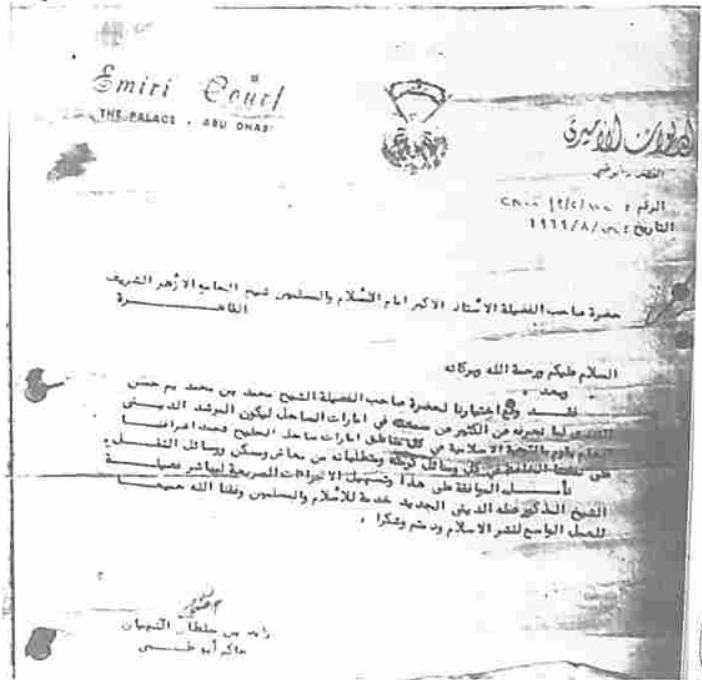 Emiri Court
THE PALACE . ABU DHABI
الديوان الأميري
القصر
الرقم :
التاريخ :
حضرة صاحب الفضيلة الأستاذ الاكبر امام الاسلام والمسلمين شيخ الجامع الازهر الشريف
القاهـــــرة
السلام عليكم ورحمة الله وبركاته
وبعد ،
نقـــد وقع اختيارنا لحضرة صاحب الفضيلة الشيخ محمد بن محمد حسن
لما نعرفه عن الكثير من سمعته في امارات الساحل ليكون المرشد الدينـــي
الاسلامية في كل مناطق امارات ساحل الخليج تحت اشرافنـــا
على في كل وسائل ومتطلباته من معاش وسكن ووسائل التنقـــل ،
نأمـــل الموافقة على هذا وتسهيل الاجراءات السريعة ليباشر فضيلـــة
الشيخ المذكور عمله الديني الجديد خدمة للاسلام والمسلمين وفقنا الله جميعـــا
للعمل الواسع لنشر الاسلام ودمتم وشكرا .
زايد بن سلطان آل نهيان
حاكم أبو ظـــبي